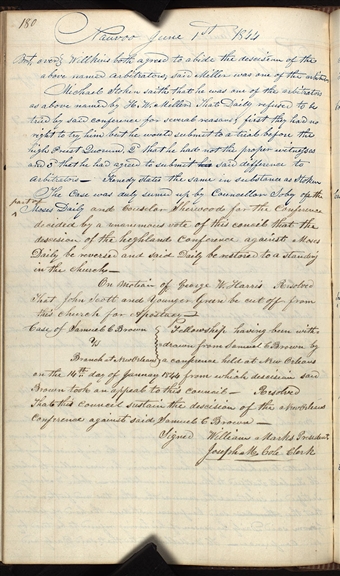 180
Nauvoo June 1st 1844
over Wilkins both agreed to abide the descision of the
above named arbitrators, said Miller was one of the arbitrators
Michael Stokin saith that he was one of the arbitrators
as above named by H. W. Miller That Daily refused to be
tried by said conference for several reasons, first they had no
right to try him but he would submit to a trial before the
high Priest Quorum, 2d that he had not the proper witnesses
and 3d that he had agreed to submit said difference to
Arbitrators — Kenedy states the same in substance as Stokin
The Case was duly sumed up by Councellor Soby on the
part of
Moses Daily and Counselor Sherwood for the Conference
deceded by a unanimous vote of this council that the
descision of the highland Conference against Moses
Daily be reversed and said Daily be restored to a standing
in the Church —
On motion of George W Harris Resolved
That John Scott and Younger Green be cut off from
this Church for Apostacy —
Case of Samuel C Brown
vs
Branch at New Orleans
Fellowship having been with-
drawn from Samuel C Brown by
a conference held at New Orleans
on the 14th day of January 1844 from which descision said
Brown took an appeal to this council — Resolved
That this Council sustain the descision of the New Orleans
Conference against said Samuel C Brown —
Signed William Marks President
Joseph M Cole Clerk